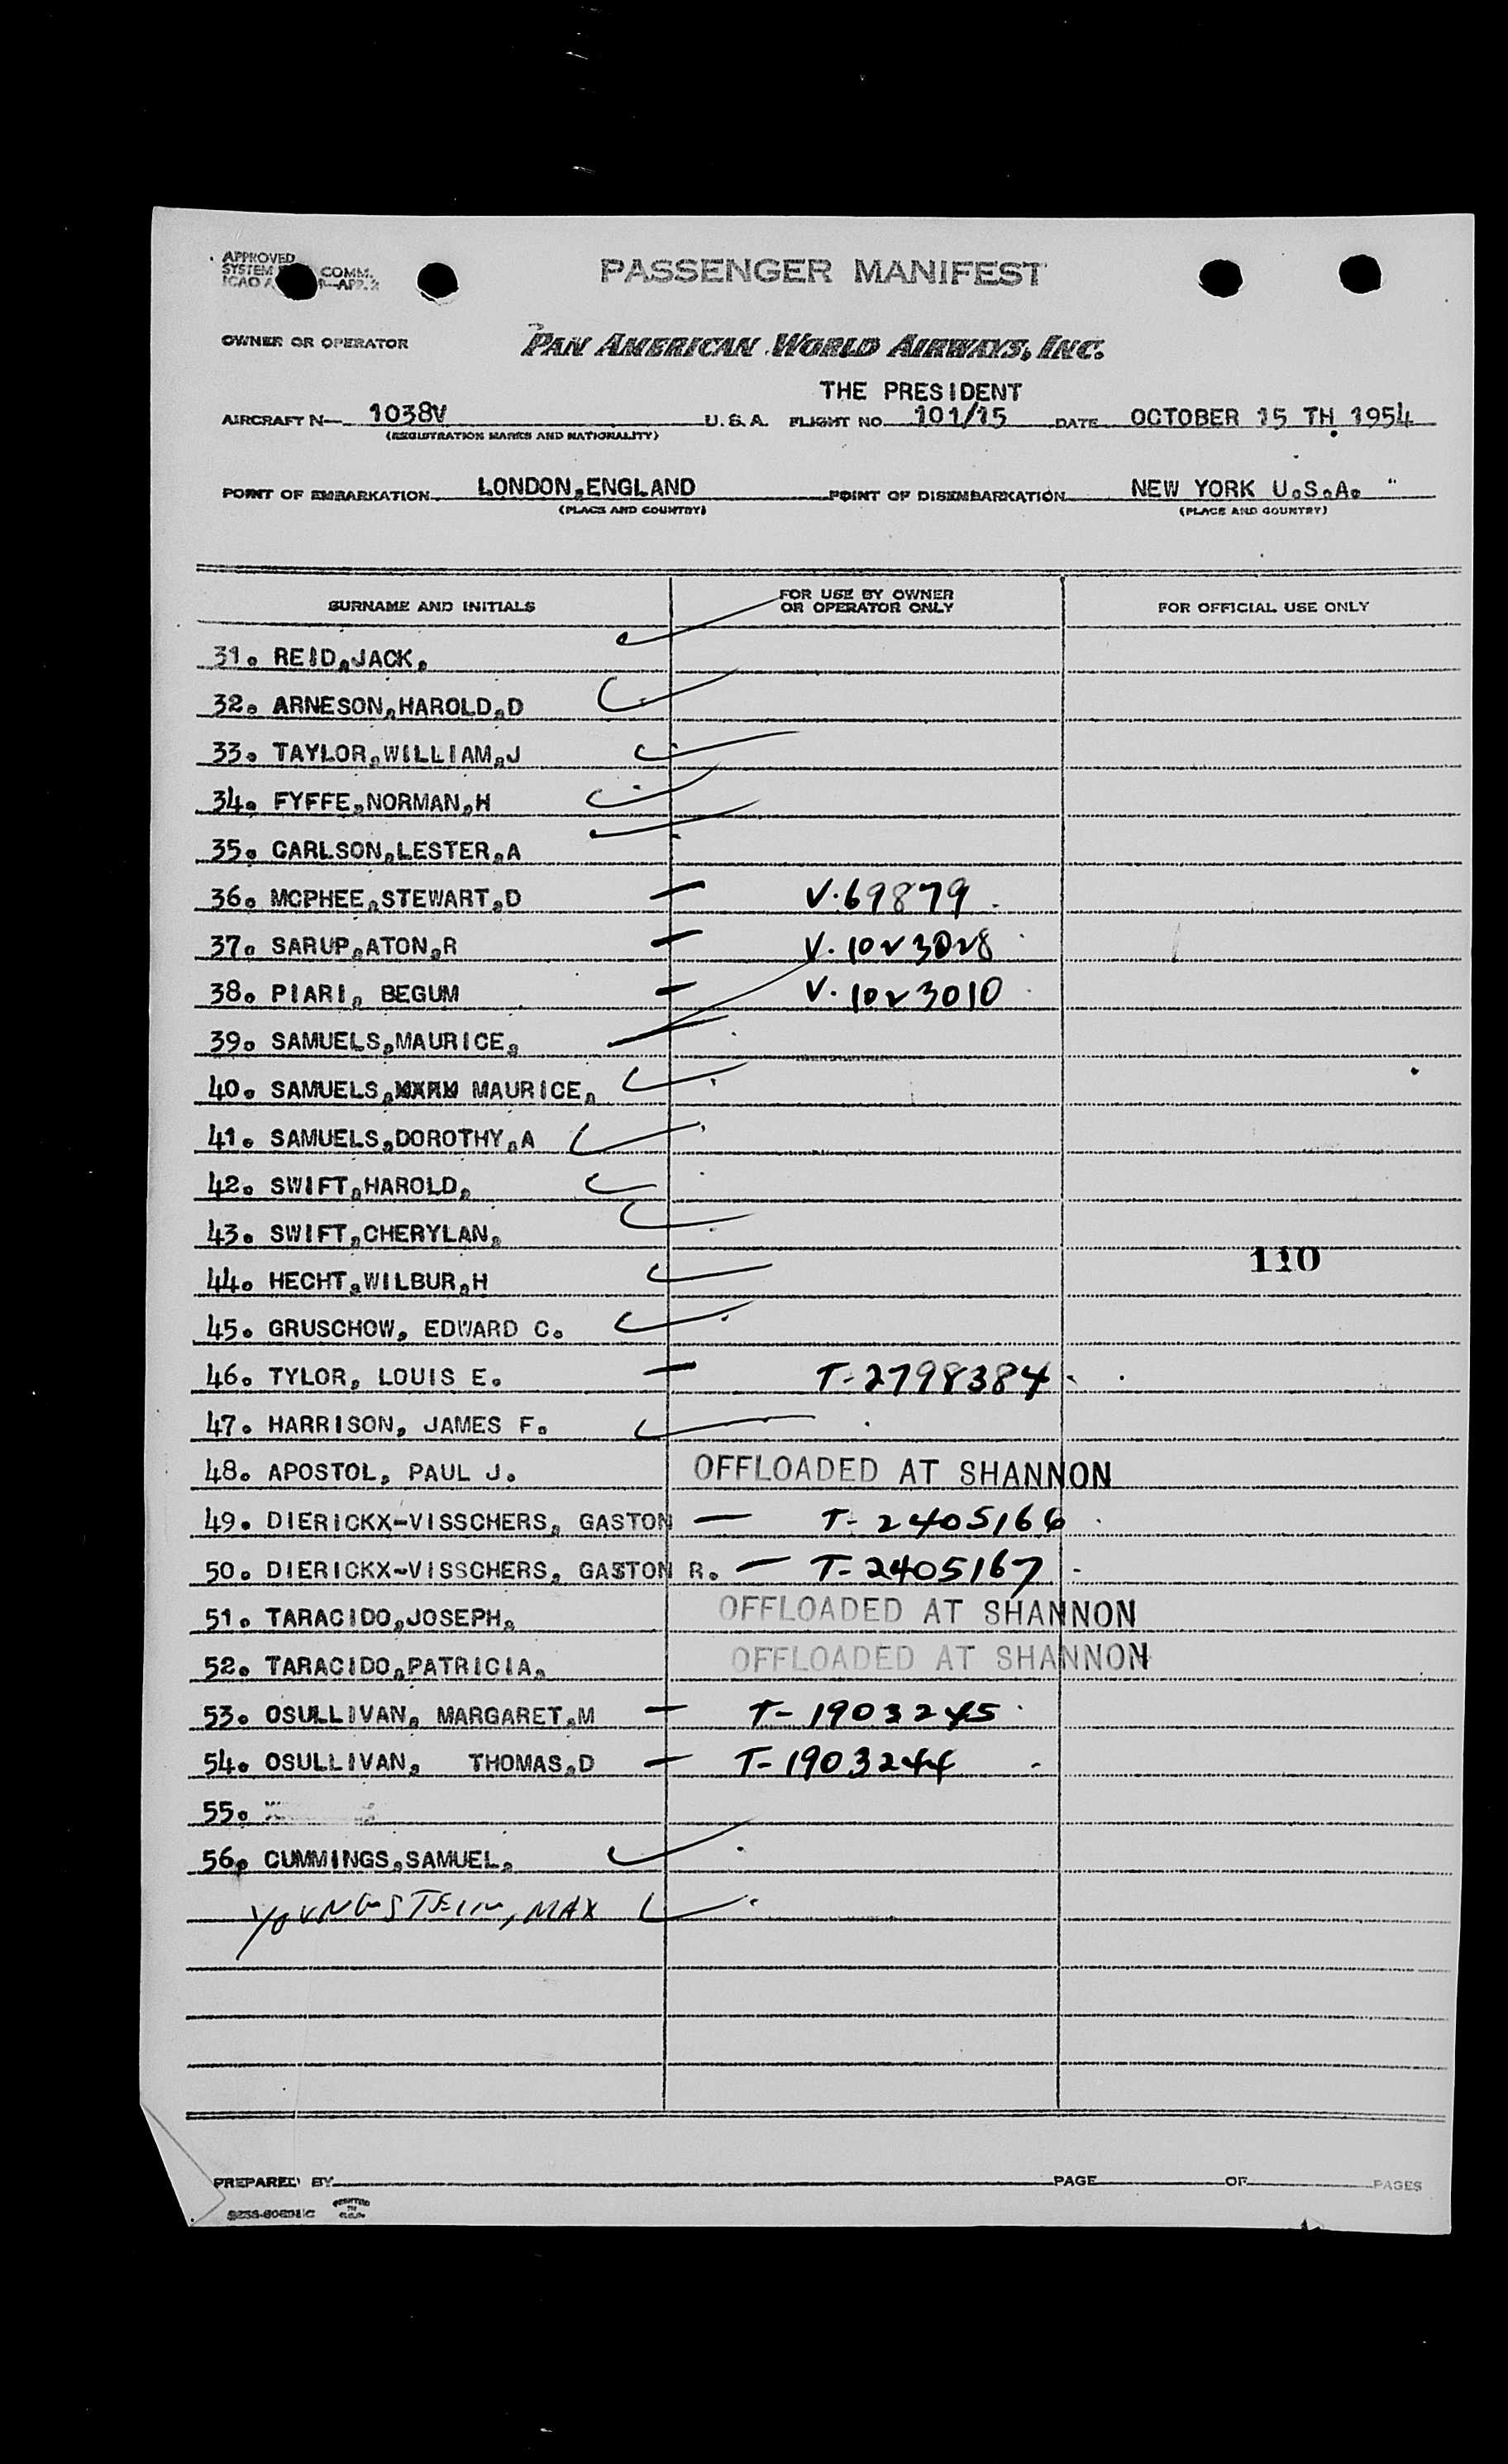 APPROVED
SYSTEM COMM.
ICAO A APP. 2
PASSENGER MANIFEST
OWNER OR OPERATOR PAN AMERICAN WORLD AIRWAYS, INC.
THE PRESIDENT
AIRCRAFT N— 1038V U. S. A. FLIGHT NO. 101/15 DATE OCTOBER 15 TH 1954
(REGISTRATION MARKS AND NATIONALITY)
POINT OF EMBARKATION LONDON,ENGLAND POINT OF DISEMBARKATION NEW YORK U.S.A. "
(PLACE AND COUNTRY) (PLACE AND COUNTRY)
SURNAME AND INITIALS FOR USE BY OWNER OR OPERATOR ONLY FOR OFFICIAL USE ONLY
31. REID,JACK.
32. ARNESON,HAROLD,D
33. TAYLOR,WILLIAM,J
34. FYFFE,NORMAN,H
35. CARLSON,LESTER,A
36. MCPHEE,STEWART,D — V.69879
37. SARUP,ATON,R — V.1023028
38. PIARI, BEGUM — V.1023010
39. SAMUELS,MAURICE,
40. SAMUELS, MAURICE,
41. SAMUELS,DOROTHY,A
42. SWIFT,HAROLD,
43. SWIFT,CHERYLAN,
110
44. HECHT,WILBUR,H
45. GRUSCHOW, EDWARD C.
46. TYLOR, LOUIS E. — T-2798384
47. HARRISON, JAMES F.
48. APOSTOL, PAUL J. OFFLOADED AT SHANNON
49. DIERICKX-VISSCHERS, GASTON — T-2405166
50. DIERICKX-VISSCHERS, GASTON R. — T-2405167
51. TARACIDO,JOSEPH, OFFLOADED AT SHANNON
52. TARACIDO,PATRICIA, OFFLOADED AT SHANNON
53. OSULLIVAN, MARGARET,M — T-1903245
54. OSULLIVAN, THOMAS,D — T-1903244
55.
56. CUMMINGS,SAMUEL,
YOUNGSTEIN, MAX
PREPARED BY PAGE OF PAGES